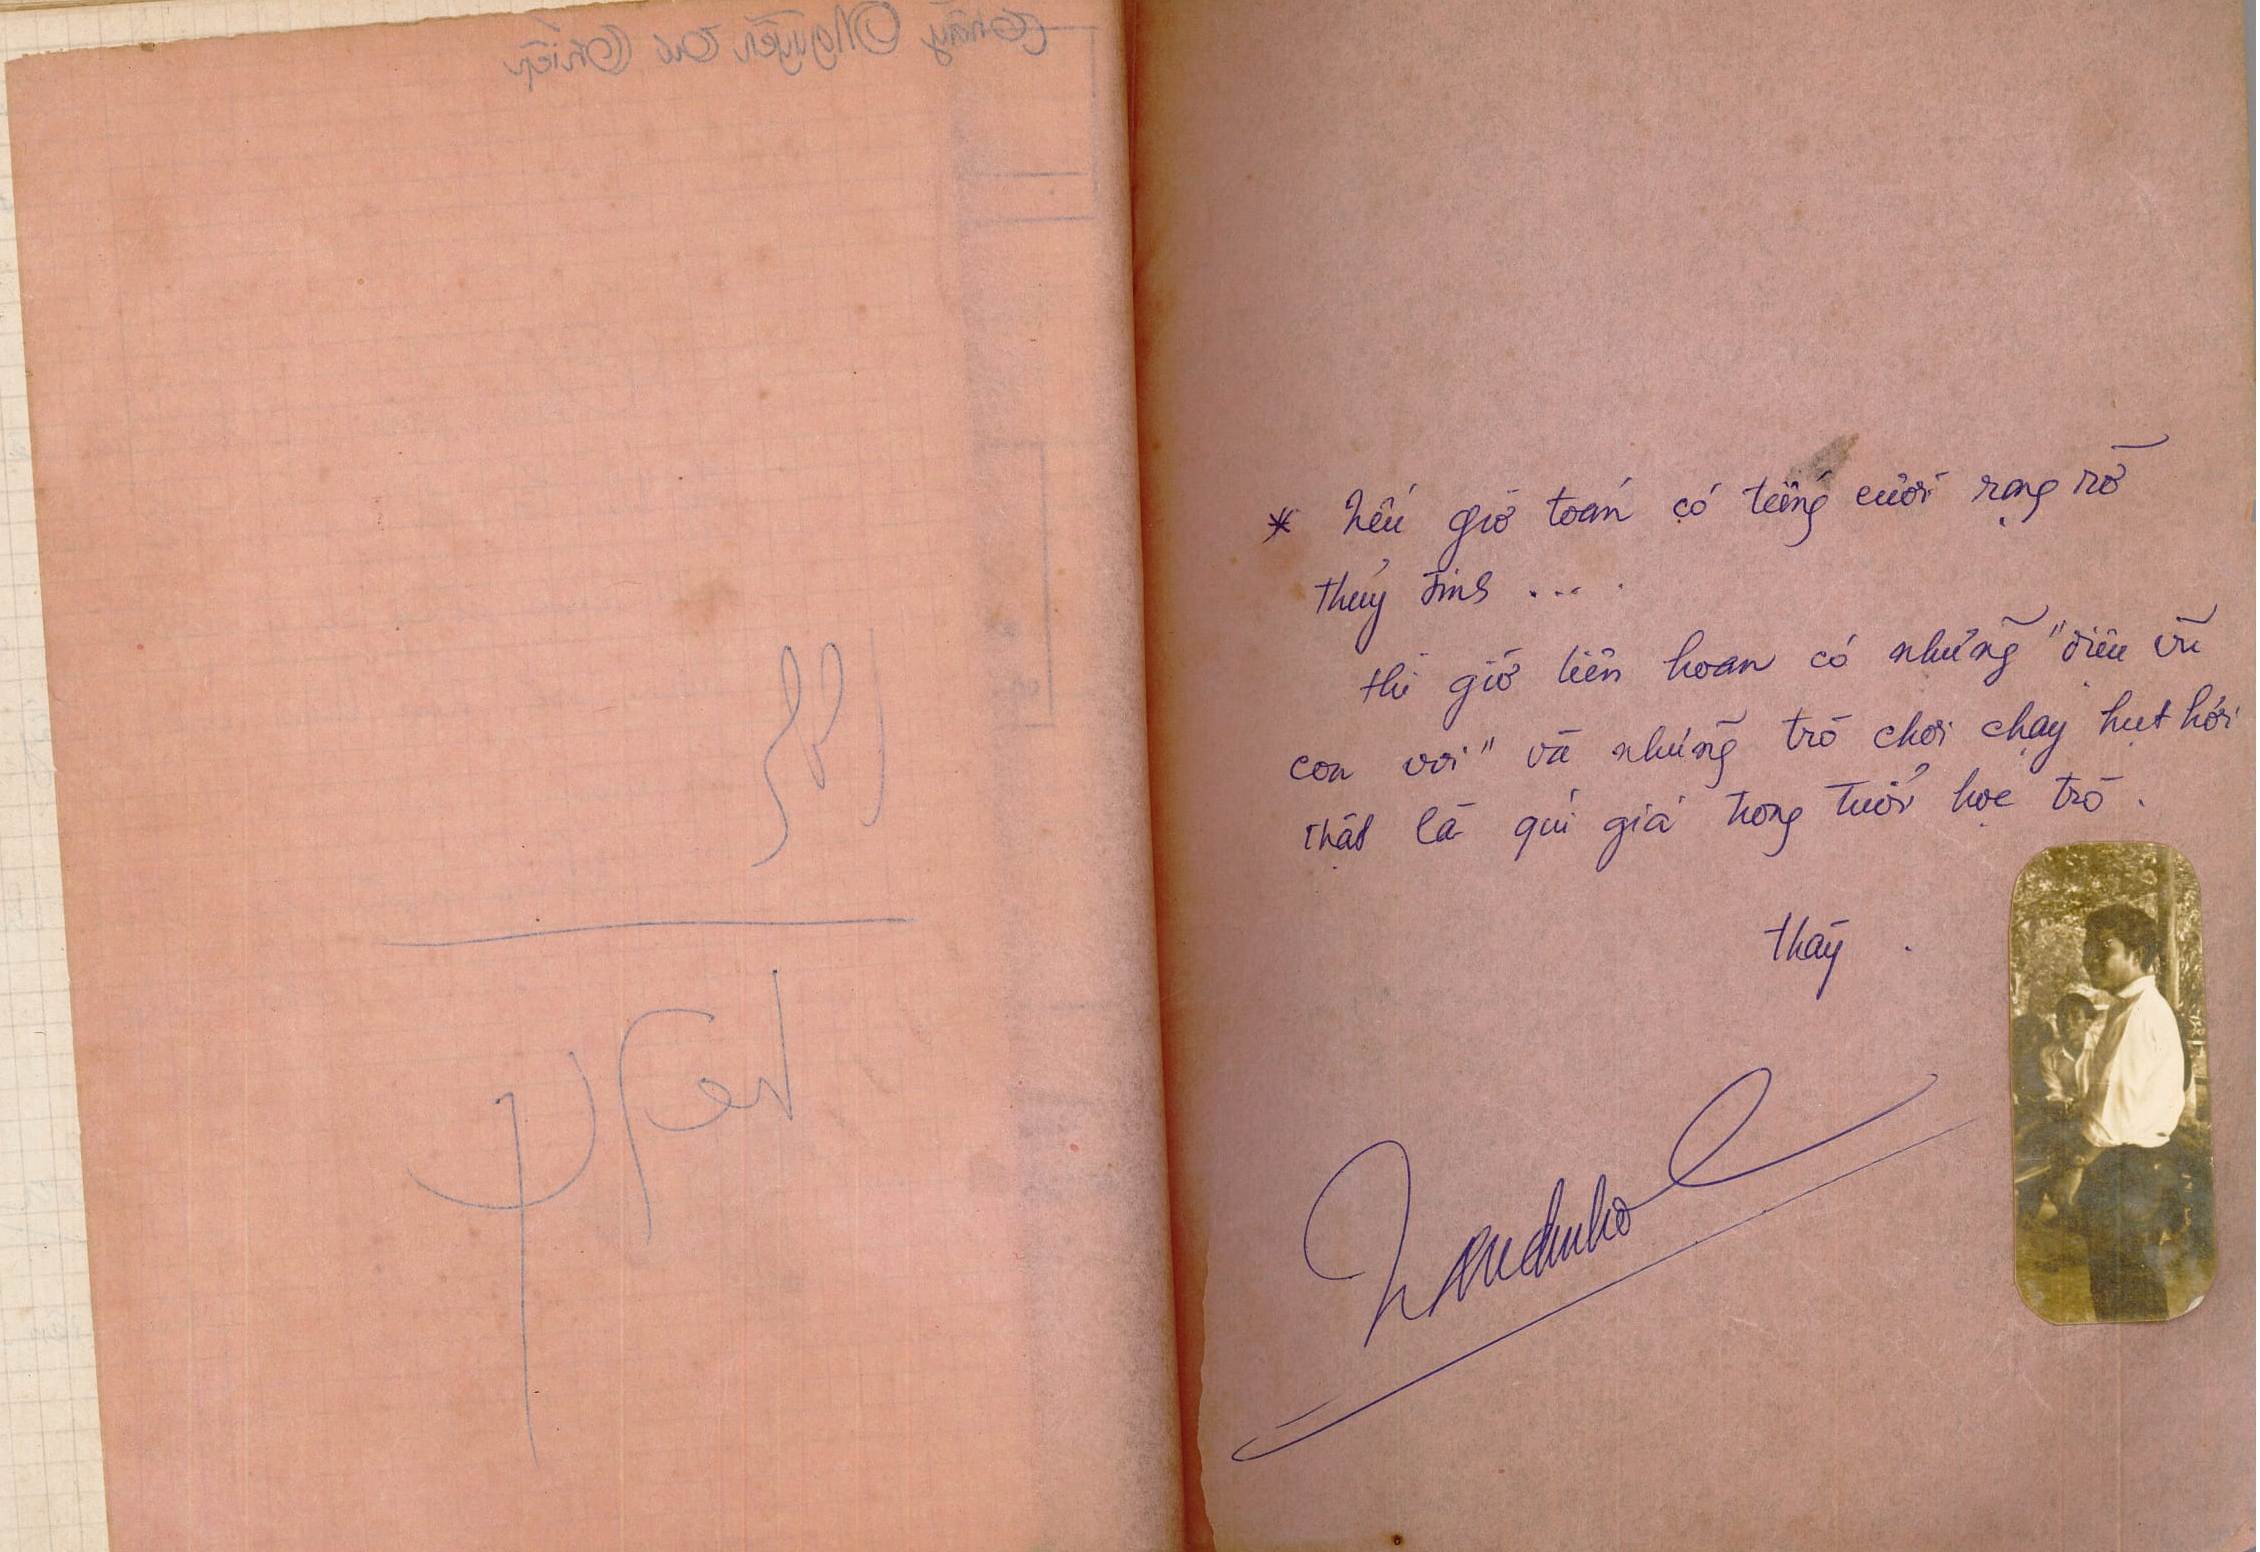 Thầy Nguyễn Tư Thiện
* Nếu giờ toán có tiếng cười rạng rỡ
thủy tinh ....
thì giờ liên hoan có những "điệu vũ
con voi" và những trò chơi chạy hụt hơi
thật là quí giá trong tuổi học trò.
thầy.